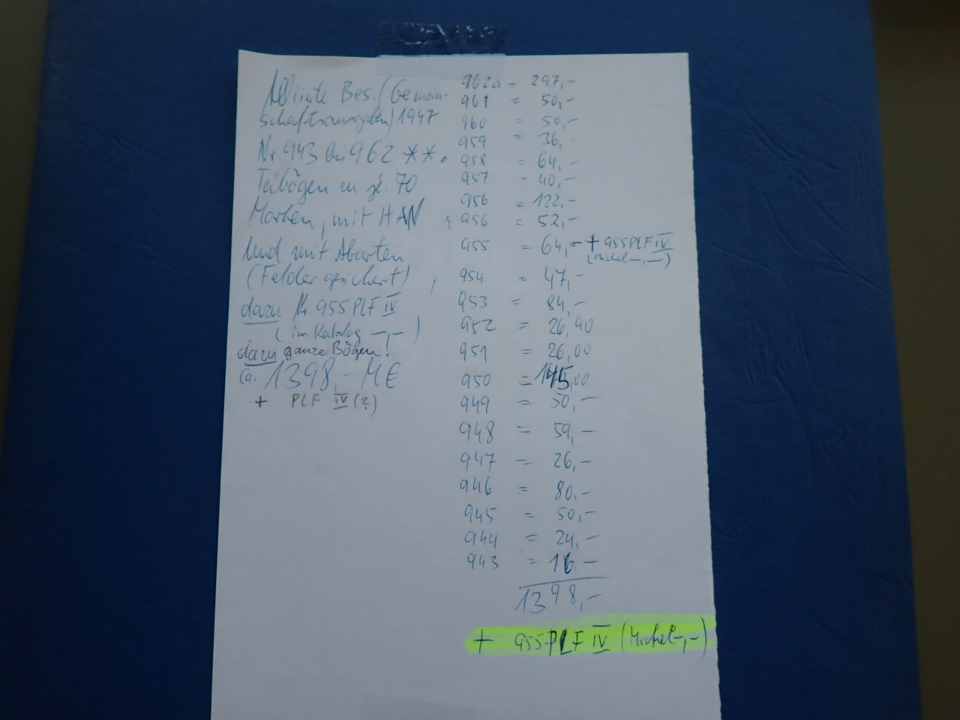 Alliierte Bes. (Gemein-
schaftsausgaben) 1947
Nr. 943 bis 962 **.
Teilbögen zu je 70
Marken, mit HAN
und mit Abarten
(Felder gesichert),
dazu 955 PLF IV
(im Katalog -,-)
dazu ganze Bögen!
ca. 1398,- M€
+ PLF IV (?)
962a - 297,-
961 = 50,-
960 = 50,-
959 = 36,-
958 = 64,-
957 - 40,-
956 = 122,-
956 = 52,-
955 = 64,- + 955 PLF IV
(Michel -,-)
954 = 47,-
953 = 84,-
952 = 26,40
951 = 26,00
950 = 145,00
949 = 50,-
948 = 59,-
947 - 26,-
946 = 80,-
945 = 50,-
944 = 24,-
943 = 16,-
1398,-
+ 955 PLF IV (Michel -,-)